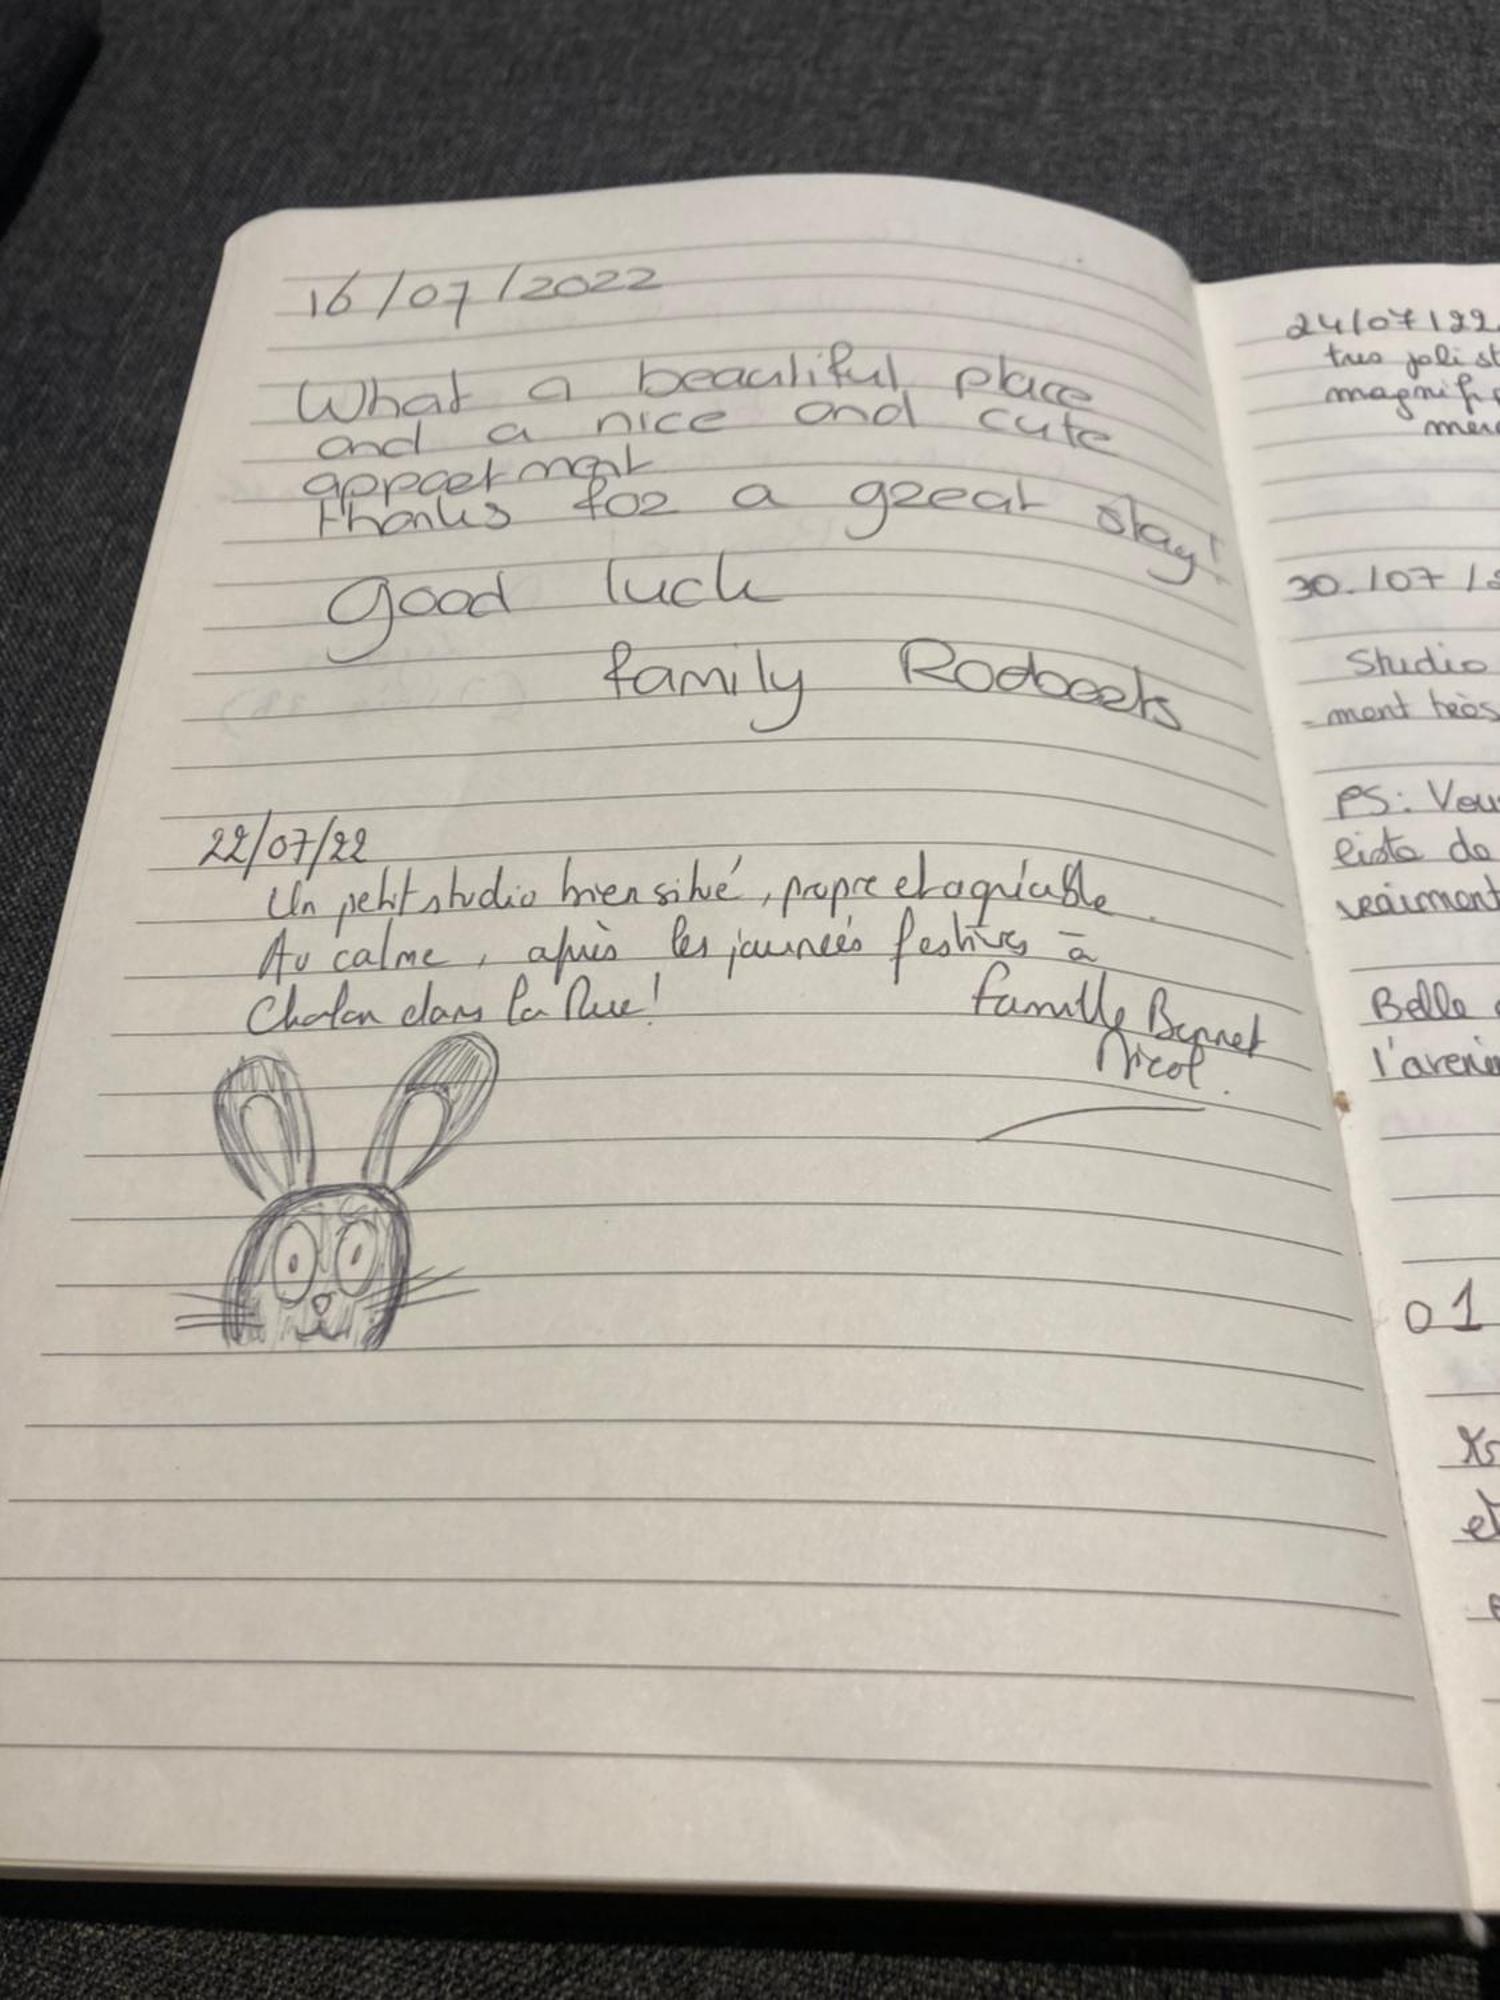 16/07/2022
What a beautiful place
and a nice and cute
appartment
thanks for a great stay!
good luck
family Rodoerts
22/07/22
Un petit studio bien situé, propre et agréable.
Au calme, après les journées festives à
Chalon dans la Rue!
famille Bonnet
Nicol.
24/07/22
tres joli st
magnif
merc
30./07/2
Studio
-ment très
PS: Vous
liste de
vraiment
Belle
l'avenir
01
et